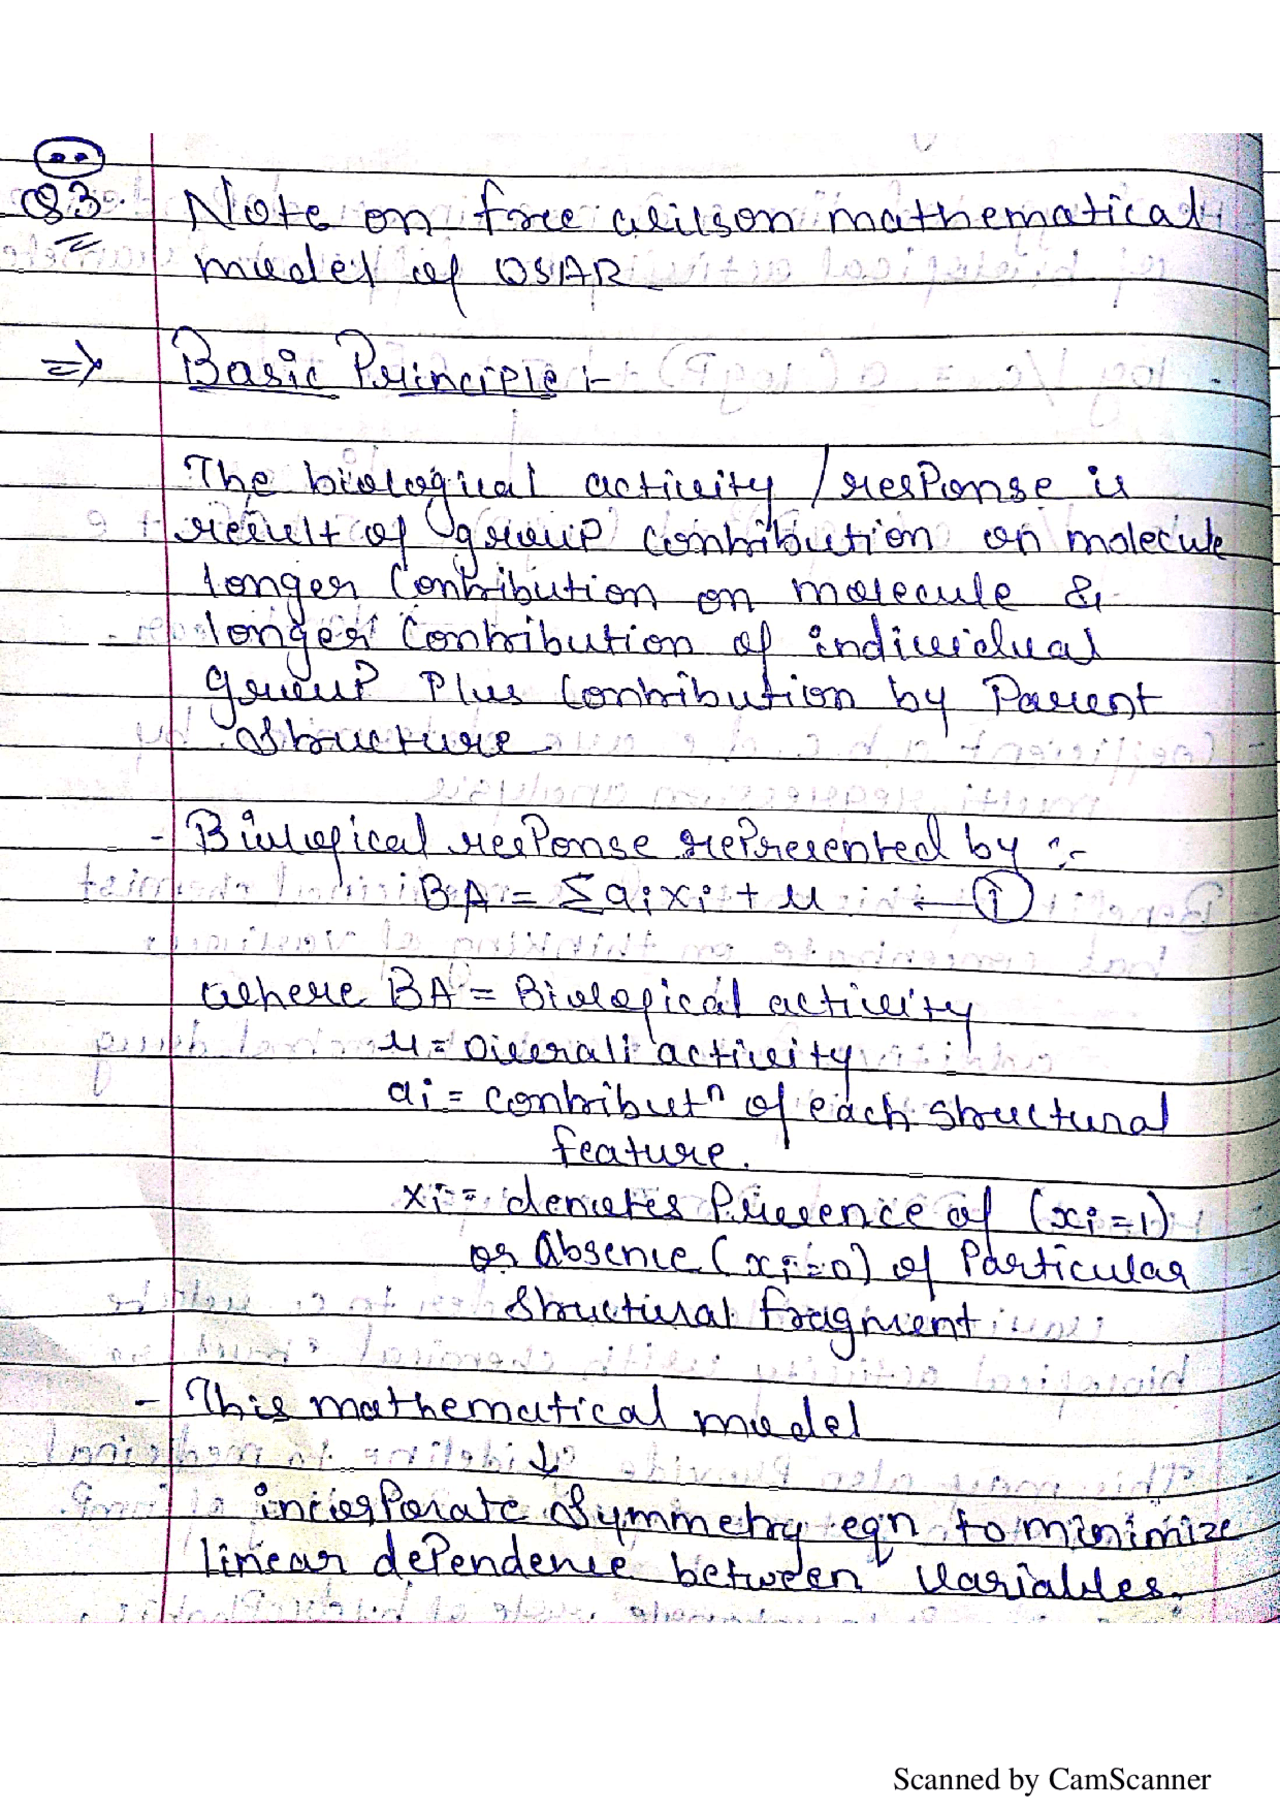 Q3. Note on free wilson mathematical
model of QSAR
=> Basic Principle :-
The biological activity / response is
result of group contribution on molecule
longer contribution on molecule &
longer contribution of individual
group Plus contribution by Parent
structure
- Biological response represented by :-
BA = Σaixi + u — ①
where BA = Biological activity
u = Overall activity
ai = contributⁿ of each structural
feature.
xi = denotes Presence of (xi=1)
or Absence (xi=0) of Particular
structural fragment
- This mathematical model
↓
incorporate symmetry eqn to minimize
linear dependence between variables.
Scanned by CamScanner